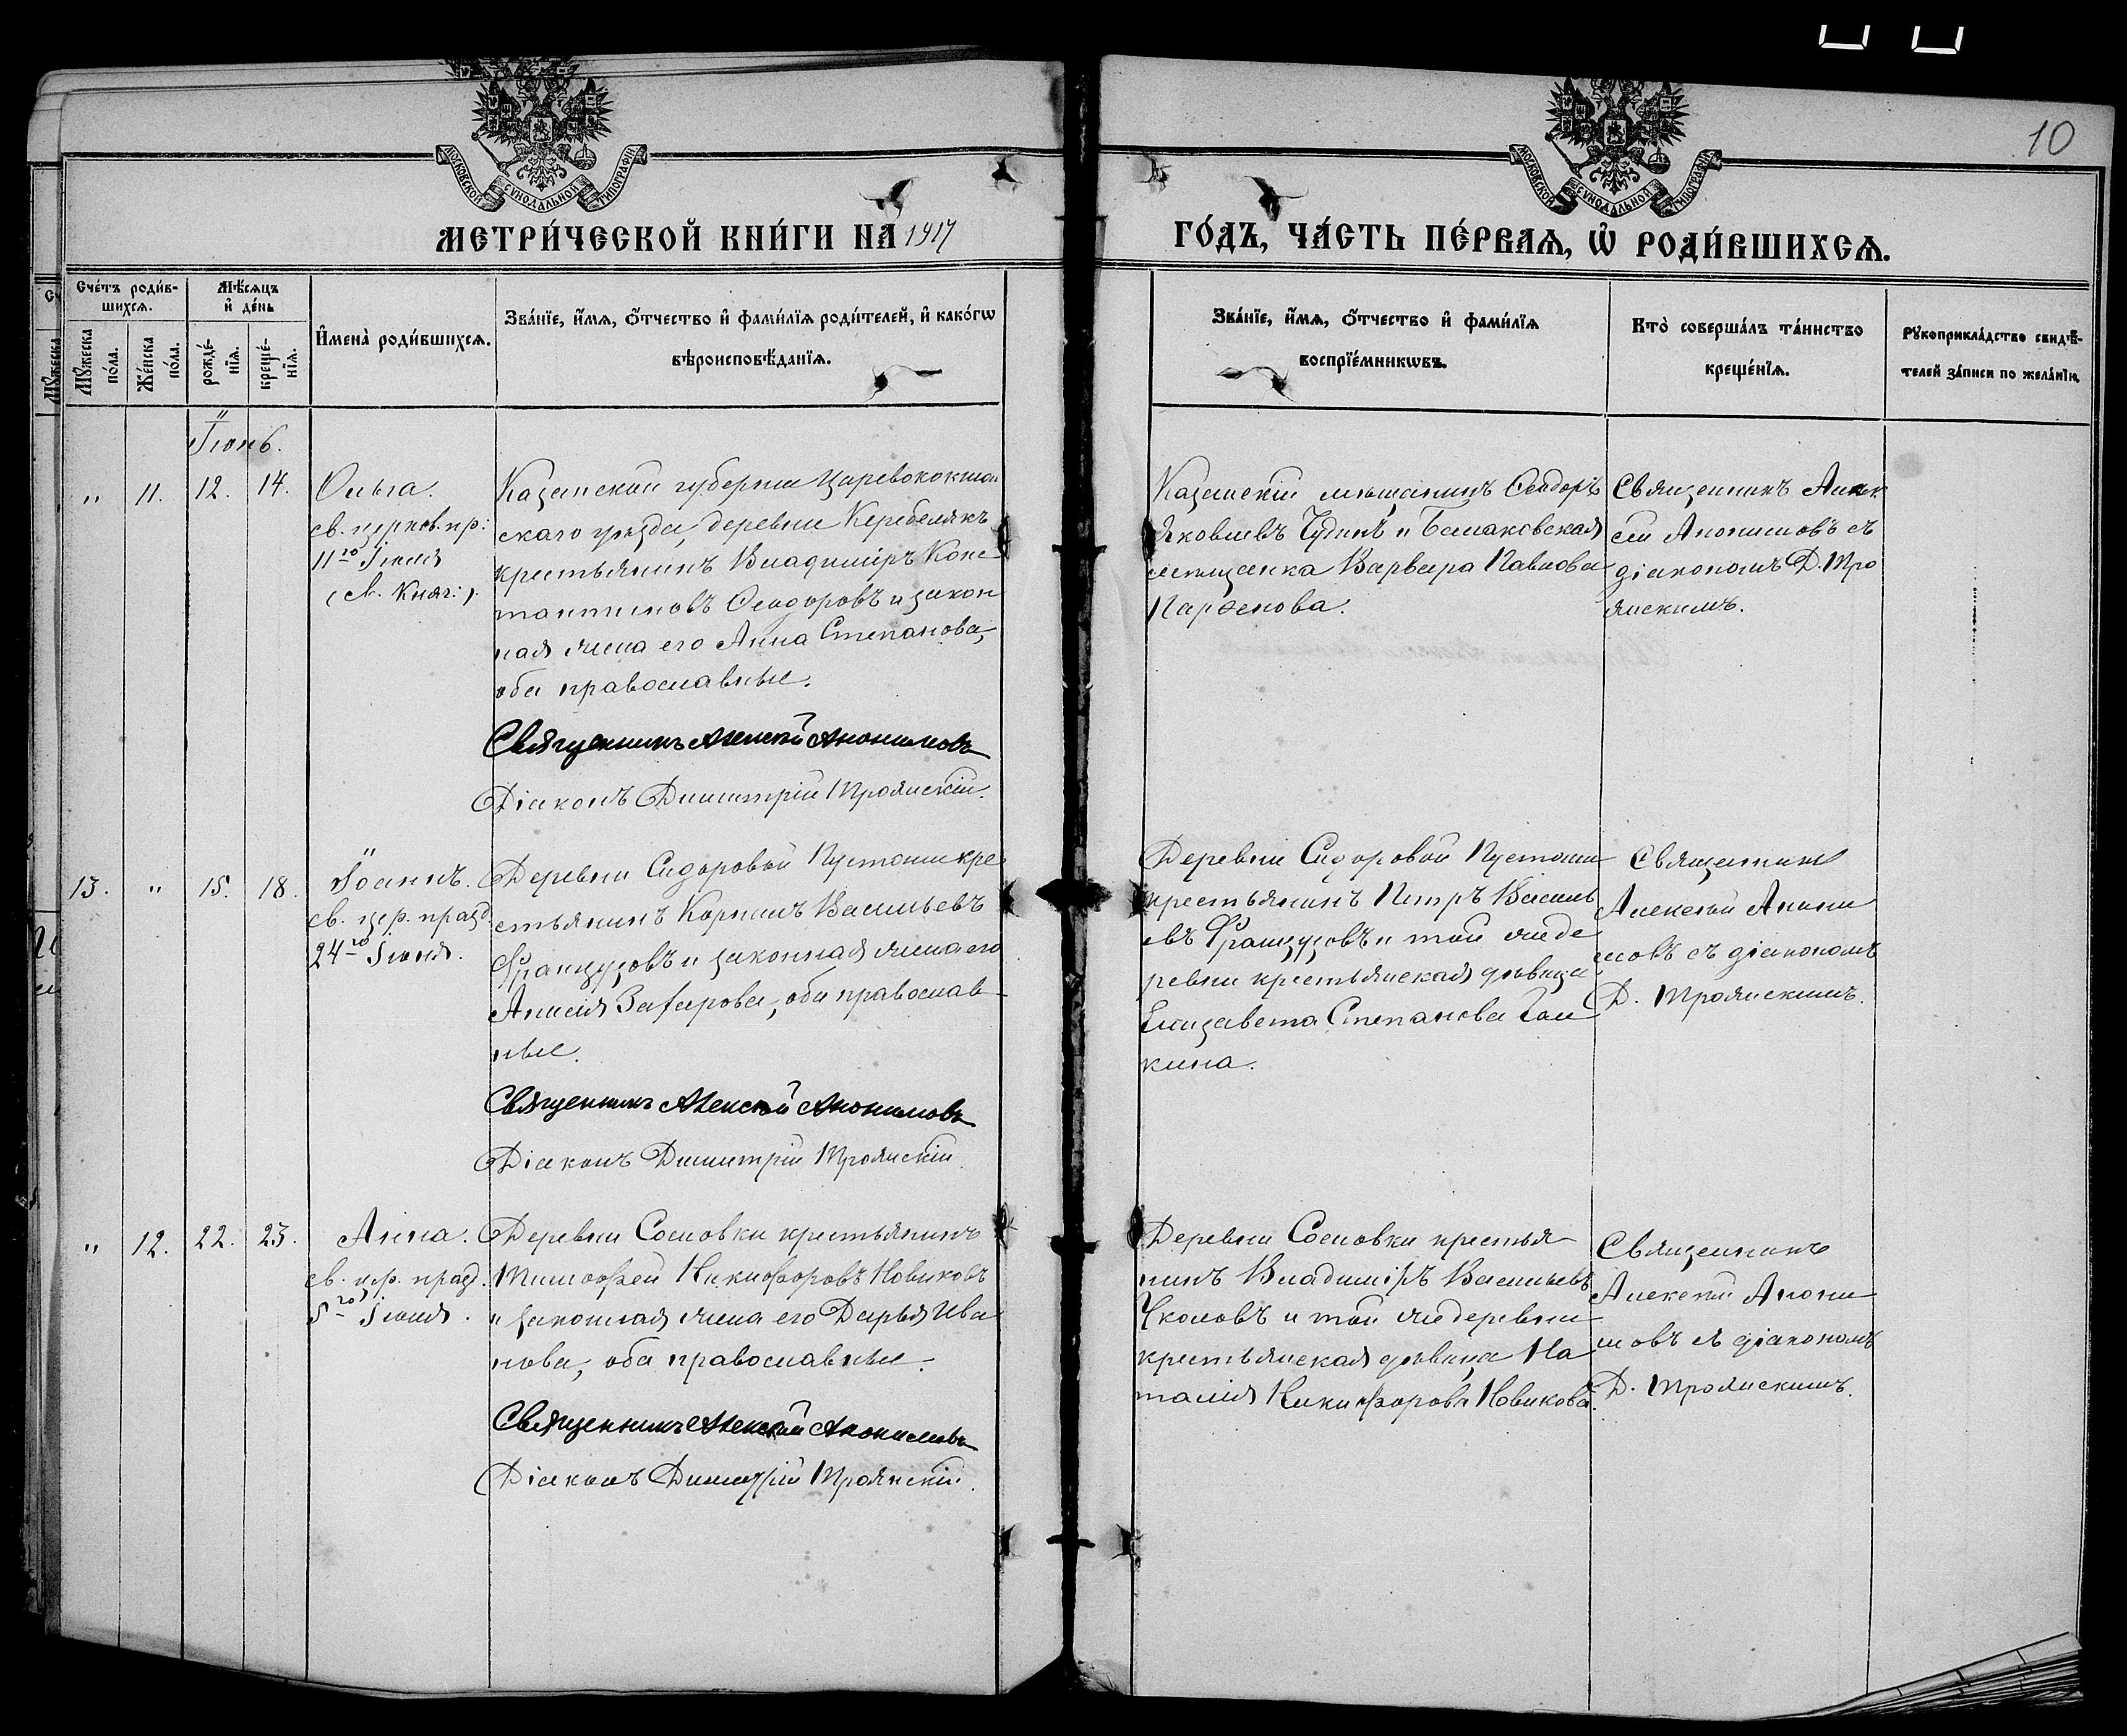 10
МОСКОВСКОЙ СѴНОДАЛЬНОЙ ТИПОГРАФІИ
МОСКОВСКОЙ СѴНОДАЛЬНОЙ ТИПОГРАФІИ
МЕТРИ́ЧЕСКОЙ КНИ́ГИ НА 1917
ГО́ДЪ, ЧА́СТЬ ПЕ́РВАѦ, Ѡ҆ РОДИ́ВШИХСѦ.
Сче́тъ роди́в-
шихсѧ.
Мꙋ́жеска
по́ла.
Же́нска
по́ла.
Мѣ́сѧцъ
и҆ де́нь
рожде́-
нїѧ.
креще́-
нїѧ.
И҆мена̀ роди́вшихсѧ.
Зва́нїе, и҆́мѧ, ѻ҆́тчество и҆ фами́лїѧ роди́телей, и҆ како́гѡ
вѣроисповѣ́данїѧ.
Зва́нїе, и҆́мѧ, ѻ҆́тчество и҆ фами́лїѧ
воспрїе́мникѡвъ.
Кто̀ соверша́лъ та́инство
креще́нїѧ.
Рꙋкоприкла́дство свидѣ́-
телей за́писи по жела́нїю.
Іюнь.
„ 11. 12. 14.
Ольга.
св. церков. пр:
11го Іюля
(св. Княг:).
Казанской губерніи Царевококшай
скаго уѣзда, деревни Керебелякъ
крестьянинъ Владиміръ Конс
тантиновъ Ѳеодоровъ и закон
ная жена его Анна Степанова,
оба православные.
Священникъ Алексѣй Анонимовъ
Діаконъ Димитрій Троянскій.
Казанскій мѣщанинъ Ѳеодоръ
Яковлевъ Чудинъ и Балаковская
мѣщанка Варвара Павлова
Парѳенова.
Священникъ Алек
сѣй Анонимовъ съ
діакономъ Д. Тро
янскимъ.
13. „ 15. 18.
Іоаннъ.
св. цер. празд.
24го Іюня.
Деревни Сидоровой Пустоши кре
стьянинъ Корнилъ Васильевъ
Французовъ и законная жена его
Анисія Захарова, оба православ-
ные.
Священникъ Алексѣй Анонимовъ
Діаконъ Димитрій Троянскій
Деревни Сидоровой Пустоши
крестьянинъ Петръ Василь
евъ Французовъ и той же де
ревни крестьянская дѣвица
Елизавета Степанова Гал
кина.
Священникъ
Алексѣй Анони
мовъ съ діакономъ
Д. Троянскимъ.
„ 12. 22. 23.
Анна.
св. цер. празд.
5го Іюня.
Деревни Сосновки крестьянинъ
Тимоѳей Никифоровъ Новиковъ
и законная жена его Дарья Ива
нова, оба православные.
Священникъ Алексѣй Анонимовъ
Діаконъ Димитрій Троянскій.
Деревни Сосновки крестья
нинъ Владиміръ Васильевъ
Чкаловъ и той же деревни
крестьянская дѣвица На
талія Никифорова Новикова.
Священникъ
Алексѣй Анони
мовъ съ діакономъ
Д. Троянскимъ.